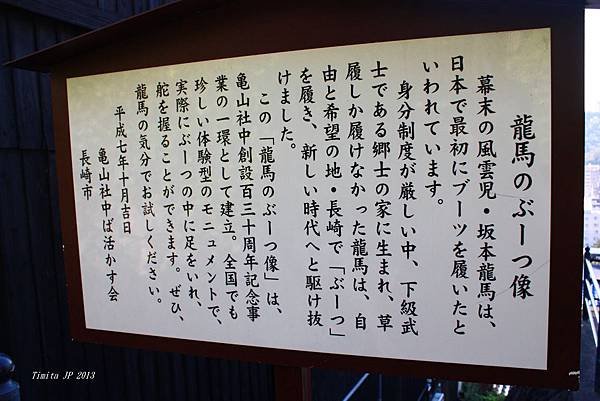 龍馬のぶーつ像
幕末の風雲児・坂本龍馬は、
日本で最初にブーツを履いたと
いわれています。
身分制度が厳しい中、下級武
士である郷士の家に生まれ、草
履しか履けなかった龍馬は、自
由と希望の地・長崎で「ぶーつ」
を履き、新しい時代へと駆け抜
けました。
この「龍馬のぶーつ像」は、
亀山社中創設百三十周年記念事
業の一環として建立。全国でも
珍しい体験型のモニュメントで、
実際にぶーつの中に足をいれ、
舵を握ることができます。ぜひ、
龍馬の気分でお試しください。
平成七年十月吉日
亀山社中ば活かす会
長崎市
Timita JP 2013